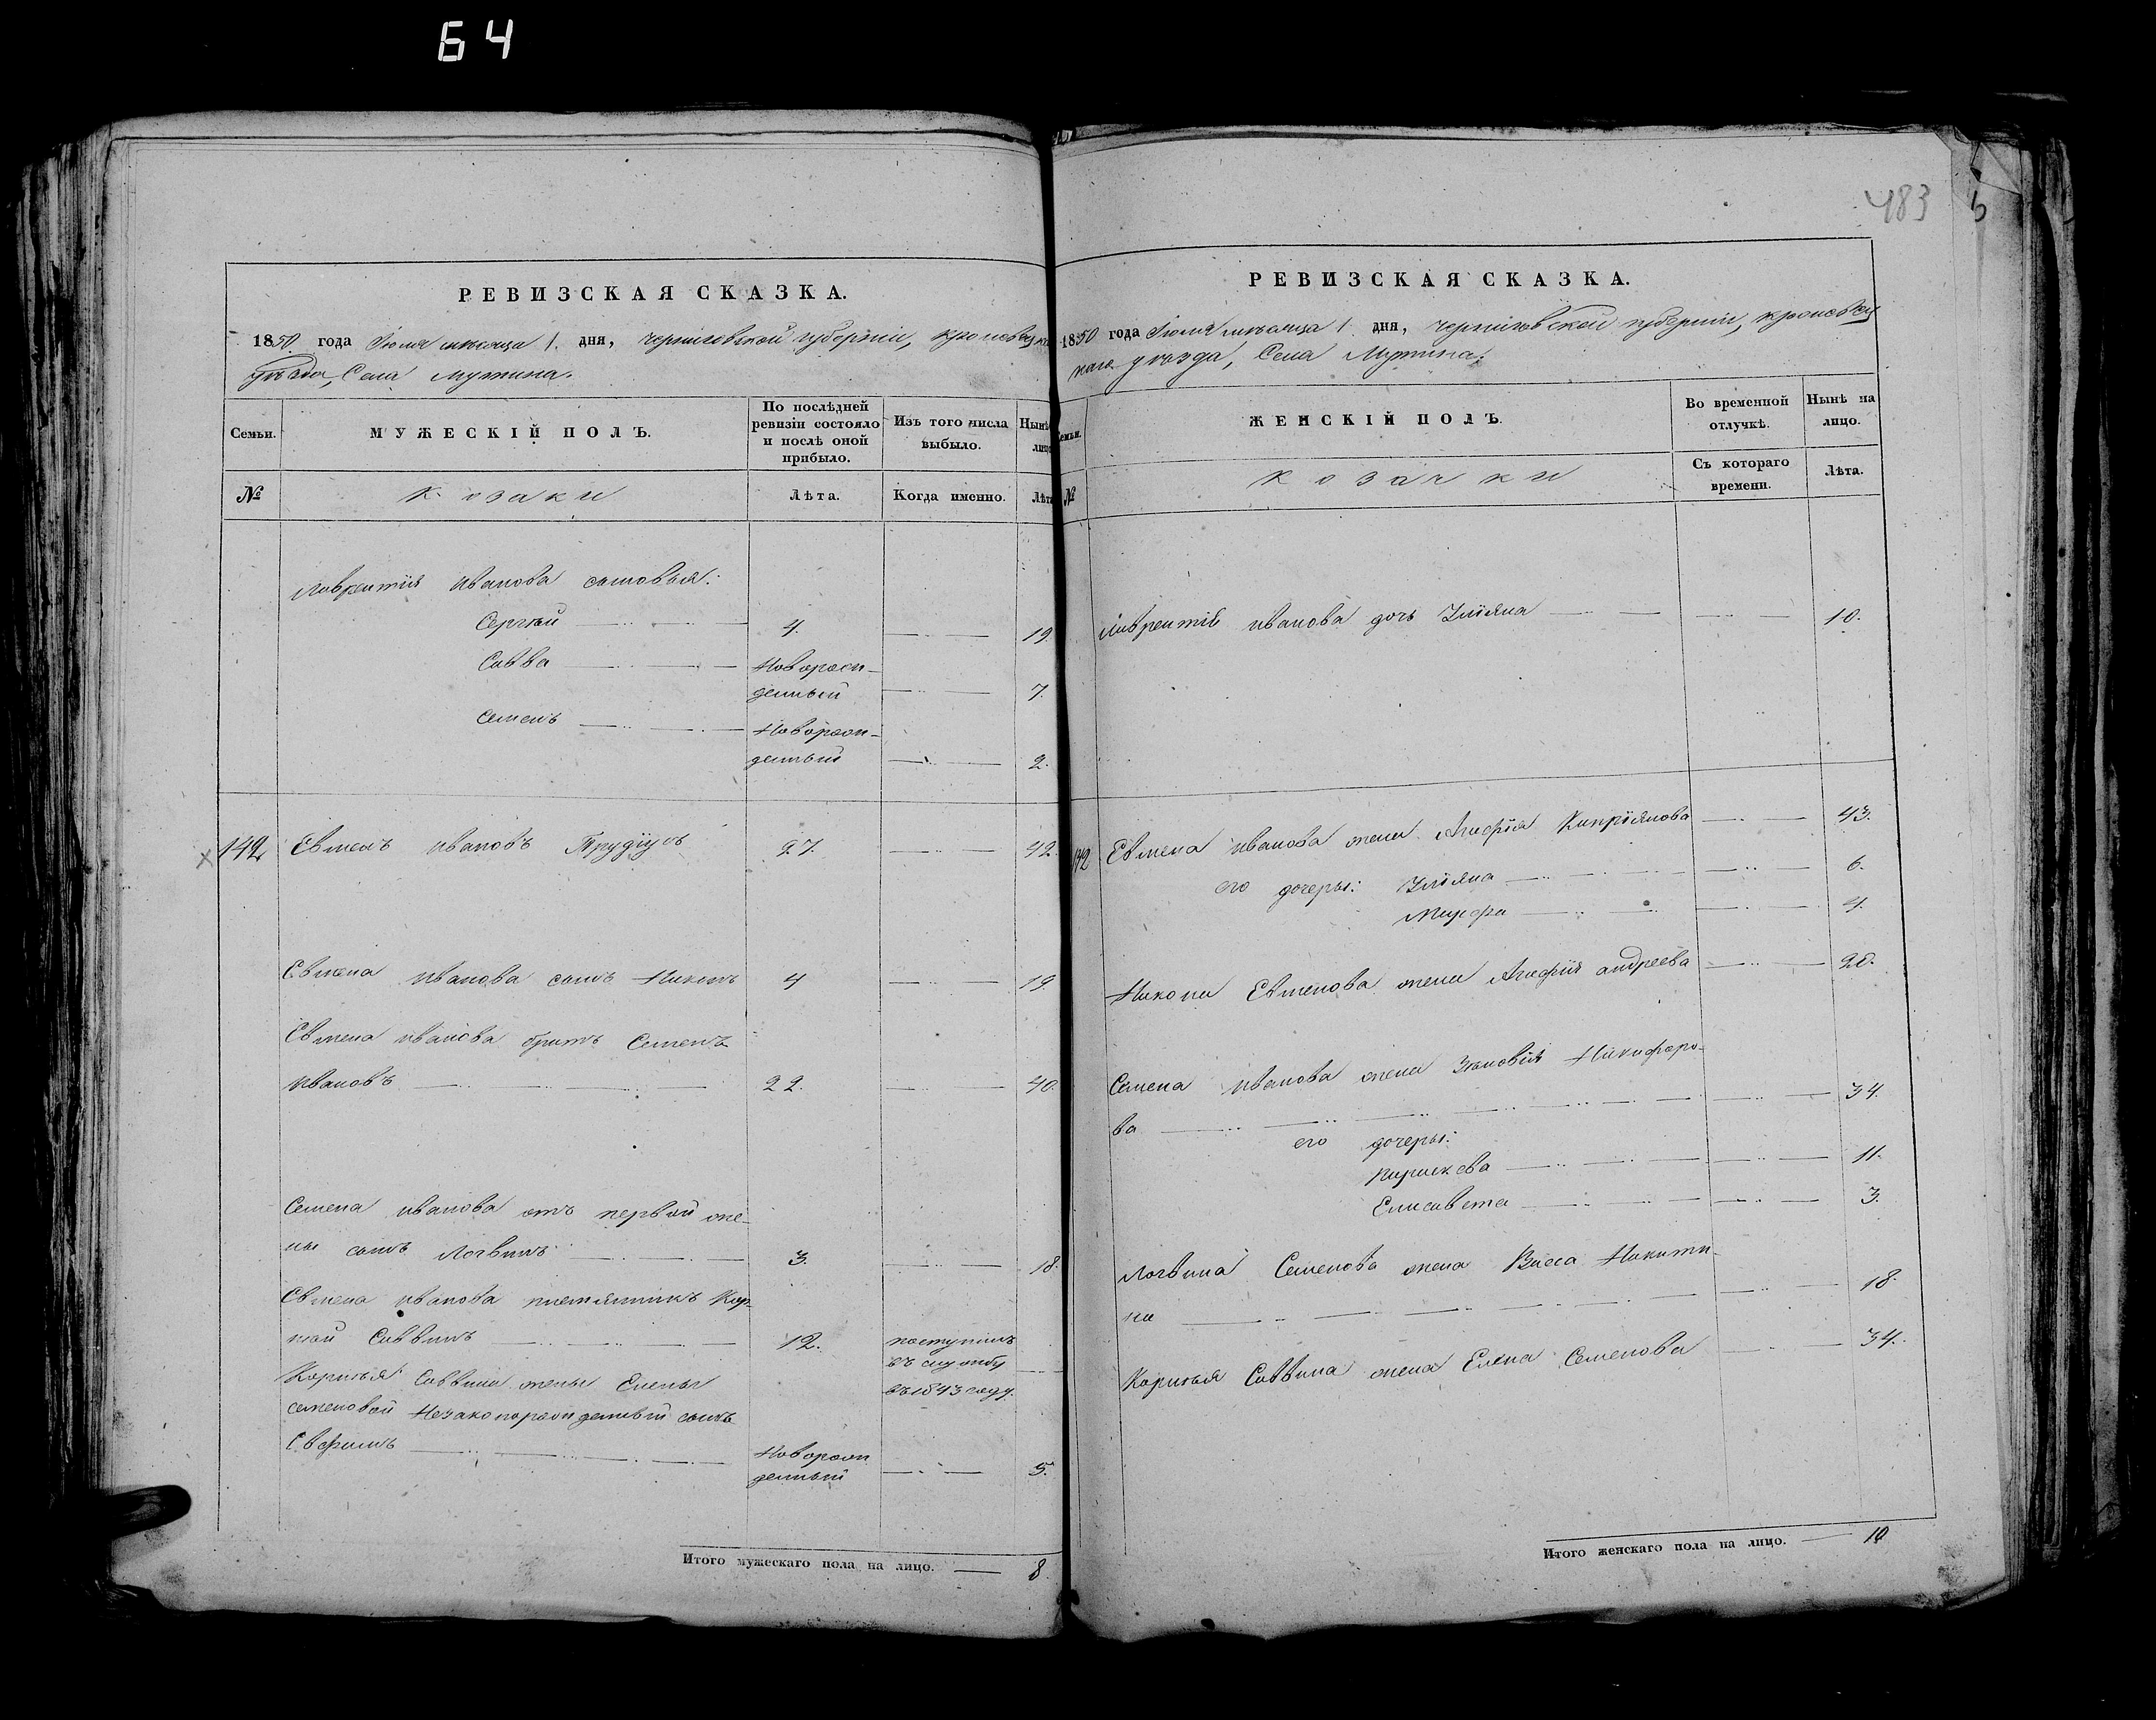 64
483
РЕВИЗСКАЯ СКАЗКА.
1850 года Іюля мѣсяца 1 дня, Черниговской губерніи, Кролевец
уѣзда, Села Мутина.
Семьи.
МУЖЕСКІЙ ПОЛЪ.
По послѣдней ревизіи состояло и послѣ оной прибыло.
Изъ того числа выбыло.
Нынѣ
лицо
№
Козаки
Лѣта.
Когда именно.
Лѣта
Лаврентія Иванова сыновья:
Сергѣй 4. 19.
Савва Новорож-
денный 7.
Семенъ Новорож-
денный 2.
142 Евменъ Ивановъ 27. 42.
Евмена Иванова сынъ Никонъ 4 19.
Евмена Иванова братъ Семенъ
Ивановъ 22. 40.
Семена Иванова отъ первой же-
ны сынъ Логвинъ 3. 18.
Евмена Иванова племянникъ Кор-
нѣй Саввинъ 12. поступилъ
въ службу
въ 1843 году.
Корнѣя Саввина жены Елены
Семеновой незаконорожденный сынъ
Ефимъ Новорож
денный 5.
Итого мужескаго пола на лицо. 8.
РЕВИЗСКАЯ СКАЗКА.
1850 года Іюля мѣсяца 1 дня, Черниговской губерніи, Кролевец
каго уѣзда, Села Мутина.
Семьи.
ЖЕНСКІЙ ПОЛЪ.
Во временной отлучкѣ.
Нынѣ на лицо.
№
Козачки
Съ котораго времени.
Лѣта.
Лаврентія Иванова дочь Уліяна 10.
142 Евмена Иванова жена Агафія Кипріянова 43.
его дочеры: Уліяна 6.
Марфа 4.
Никона Евменова жена Агафія Андреева 20.
Семена Иванова жена Зиновія Никифоро-
ва 34.
его дочеры:
Параскева 11.
Елисавета 3.
Логвина Семенова жена Васса Никити-
на 18.
Корнѣя Саввина жена Елена Семенова 34.
Итого женскаго пола на лицо. 10